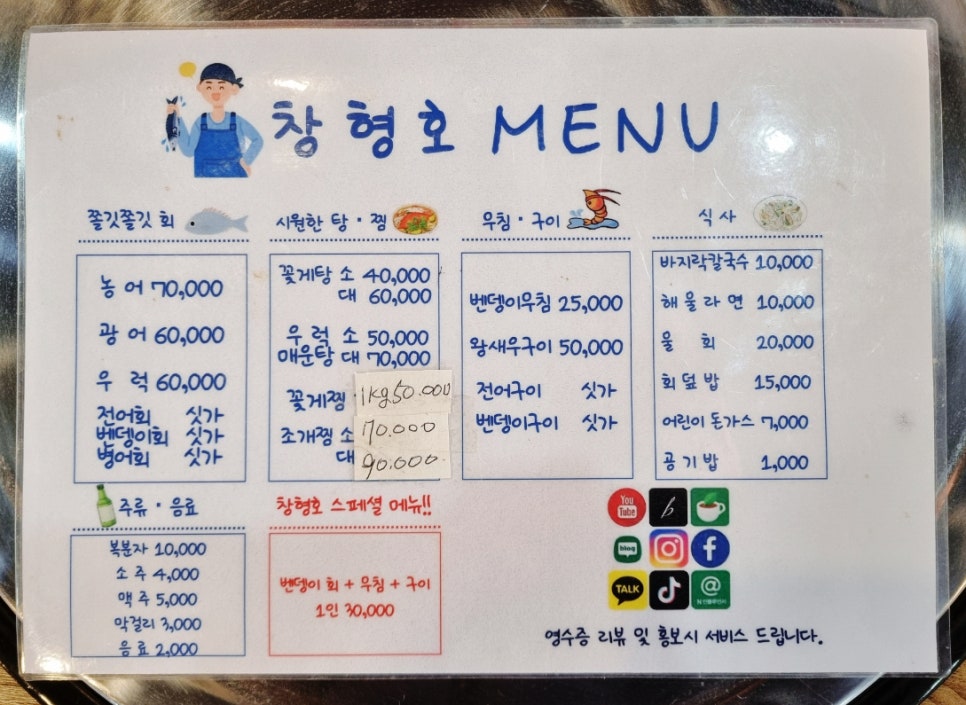 창형호 MENU
쫄깃쫄깃 회
농어 70,000
광어 60,000
우럭 60,000
전어회 싯가
벤뎅이회 싯가
병어회 싯가
시원한 탕·찜
꽃게탕 소 40,000
대 60,000
우럭 소 50,000
매운탕 대 70,000
꽃게찜 1kg 50.000
조개찜 소 70.000
대 90.000
무침·구이
벤뎅이무침 25,000
왕새우구이 50,000
전어구이 싯가
벤뎅이구이 싯가
식사
바지락칼국수 10,000
해물라면 10,000
물회 20,000
회덮밥 15,000
어린이 돈가스 7,000
공기밥 1,000
주류·음료
복분자 10,000
소주 4,000
맥주 5,000
막걸리 3,000
음료 2,000
창형호 스페셜 메뉴!!
벤뎅이 회 + 무침 + 구이
1인 30,000
You Tube
b
blog
TALK
@
영수증 리뷰 및 홍보시 서비스 드립니다.